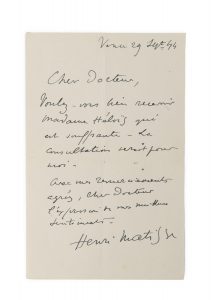 Vence 29 Sept 44
Cher Docteur,
Voulez-vous bien recevoir
madame Hélois qui
est souffrante - La
consultation serait pour
moi -
Avec mes remerciements
agréez, cher Docteur
l'expression de mes meilleurs
sentiments -
Henri Matisse